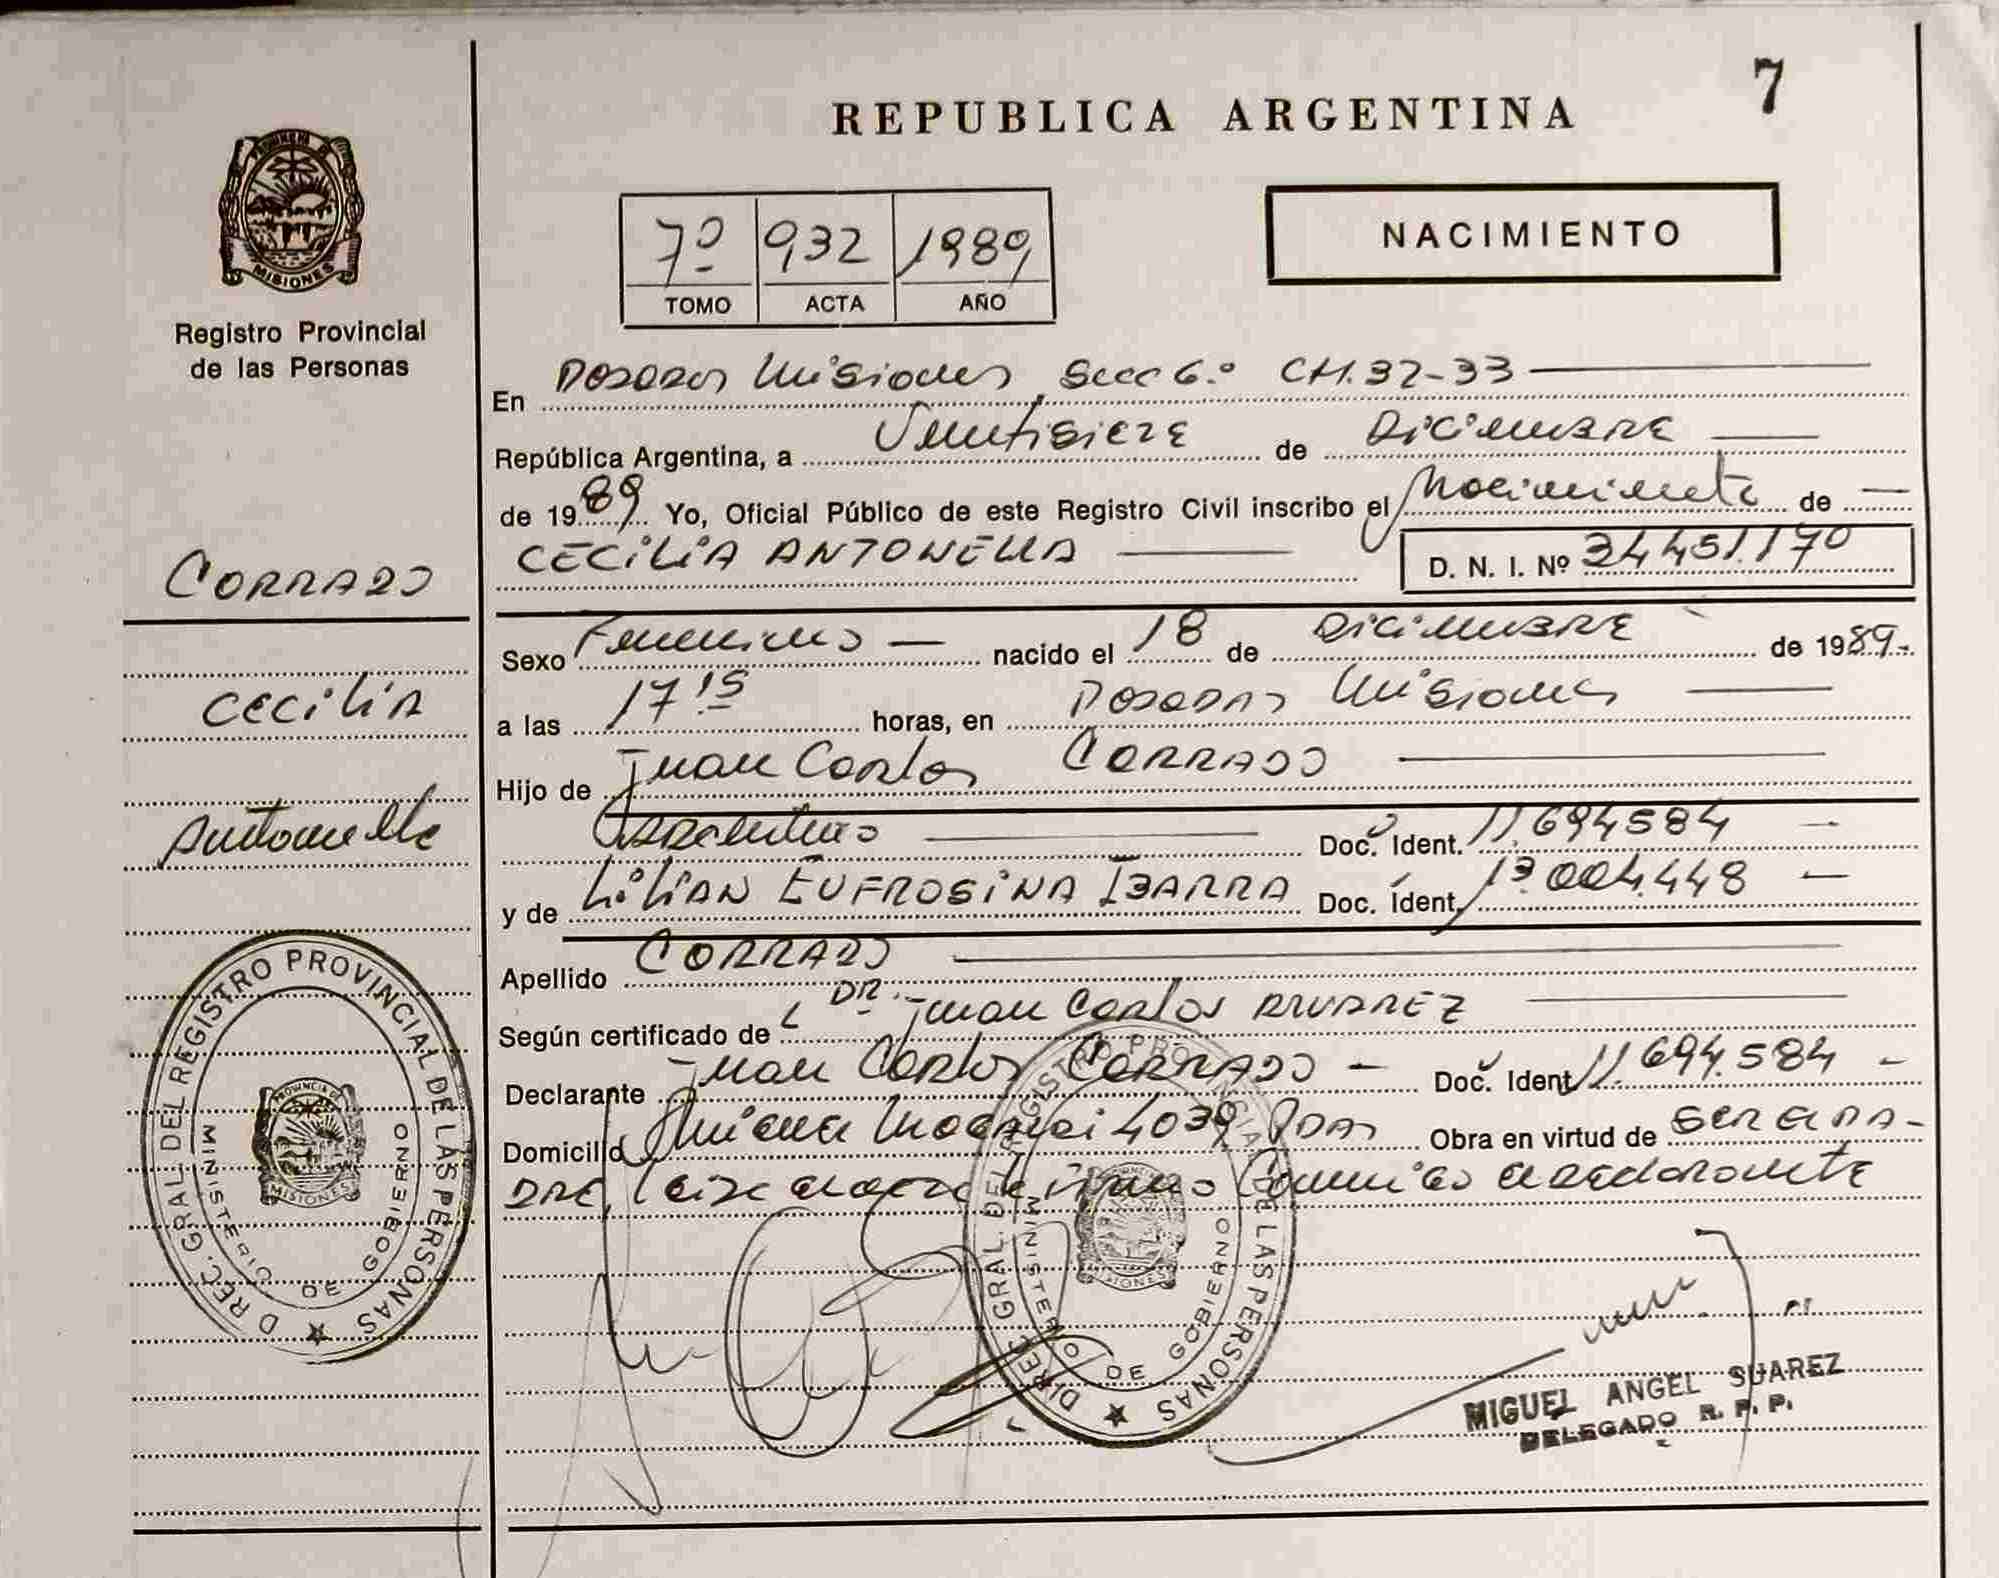 7
REPUBLICA ARGENTINA
PROVINCIA DE
MISIONES
Registro Provincial
de las Personas
7º 932 1989
TOMO ACTA AÑO
NACIMIENTO
En Posadas Misiones Secc 6.º CH. 32-33
República Argentina, a Veintisiete de Diciembre
de 1989 Yo, Oficial Público de este Registro Civil inscribo el Nacimiento de
CECILIA ANTONELLA D. N. I. Nº 34451.170
CORRADO
Cecilia
Antonella
Sexo Femenino nacido el 18 de Diciembre de 1989
a las 17.15 horas, en Posadas Misiones
Hijo de Juan Carlos CORRADO
Argentino Doc. Ident. 11.694584
y de Lilian EUFROSINA IBARRA Doc. Ident. 13.004.448
Apellido CORRADO
Según certificado de DR. Juan Carlos ALVAREZ
Declarante Juan Carlos CORRADO Doc. Ident 11.694.584
Domicilio 4039 Pdas Obra en virtud de SER EL PA-
DRE, Leida el acta la firma Conmigo el declarante
DIREC. GRAL. DEL REGISTRO PROVINCIAL DE LAS PERSONAS
MINISTERIO DE GOBIERNO
PROVINCIA DE
MISIONES
DIREC. GRAL. DEL REGISTRO PROVINCIAL DE LAS PERSONAS
MINISTERIO DE GOBIERNO
MISIONES
MIGUEL ANGEL SUAREZ
DELEGADO R. P. P.